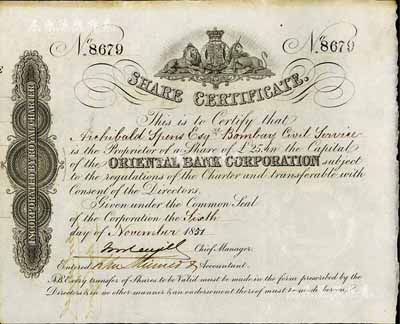 No. 8679
No. 8679
SHARE CERTIFICATE.
This is to Certify that
Archibald Spens Esqre Bombay Civil Service
is the Proprietor of a Share of £25, in the Capital
of the ORIENTAL BANK CORPORATION subject
to the regulations of the Charter and transferable with
Consent of the Directors.
Given under the Common Seal
of the Corporation the Sixth
day of November 1851
Chief Manager.
Entered
Accountant.
N.B. Every transfer of Shares to be Valid must be made in the form prescribed by the
Directors & in no other manner & an endorsement thereof must be made hereon.
INCORPORATED BY ROYAL CHARTER